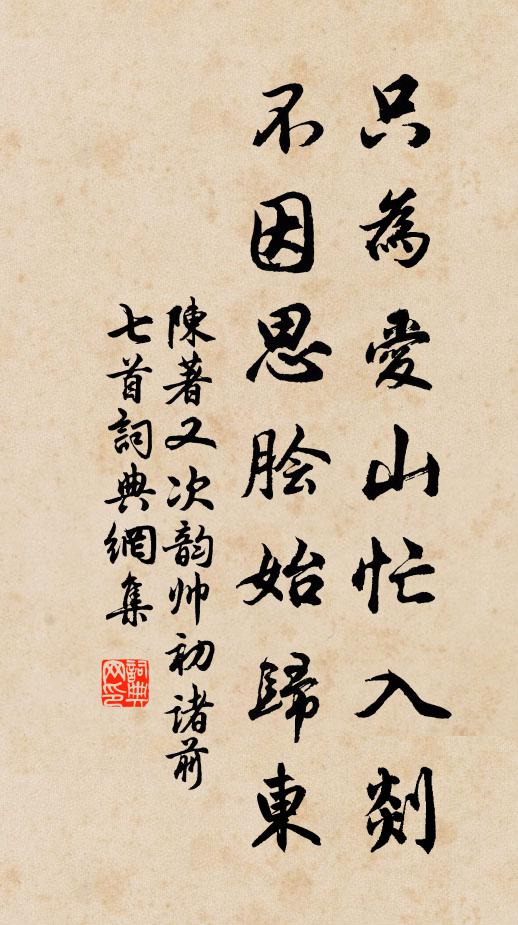 只為愛山忙入剡
不因思膾始歸東
陳著又次韵帅初諸前
七首詞典網集
詞典
网印